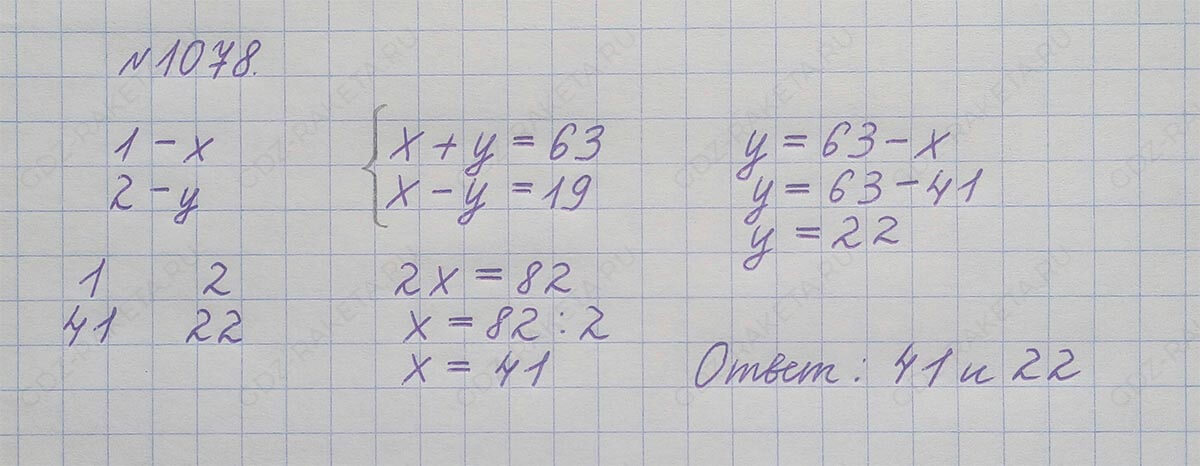 №1078.
1 – x
2 – y
1 2
41 22
x + y = 63
x – y = 19
2x = 82
x = 82 : 2
x = 41
y = 63 – x
y = 63 – 41
y = 22
Ответ: 41 и 22
GDZ-RAKETA.RU